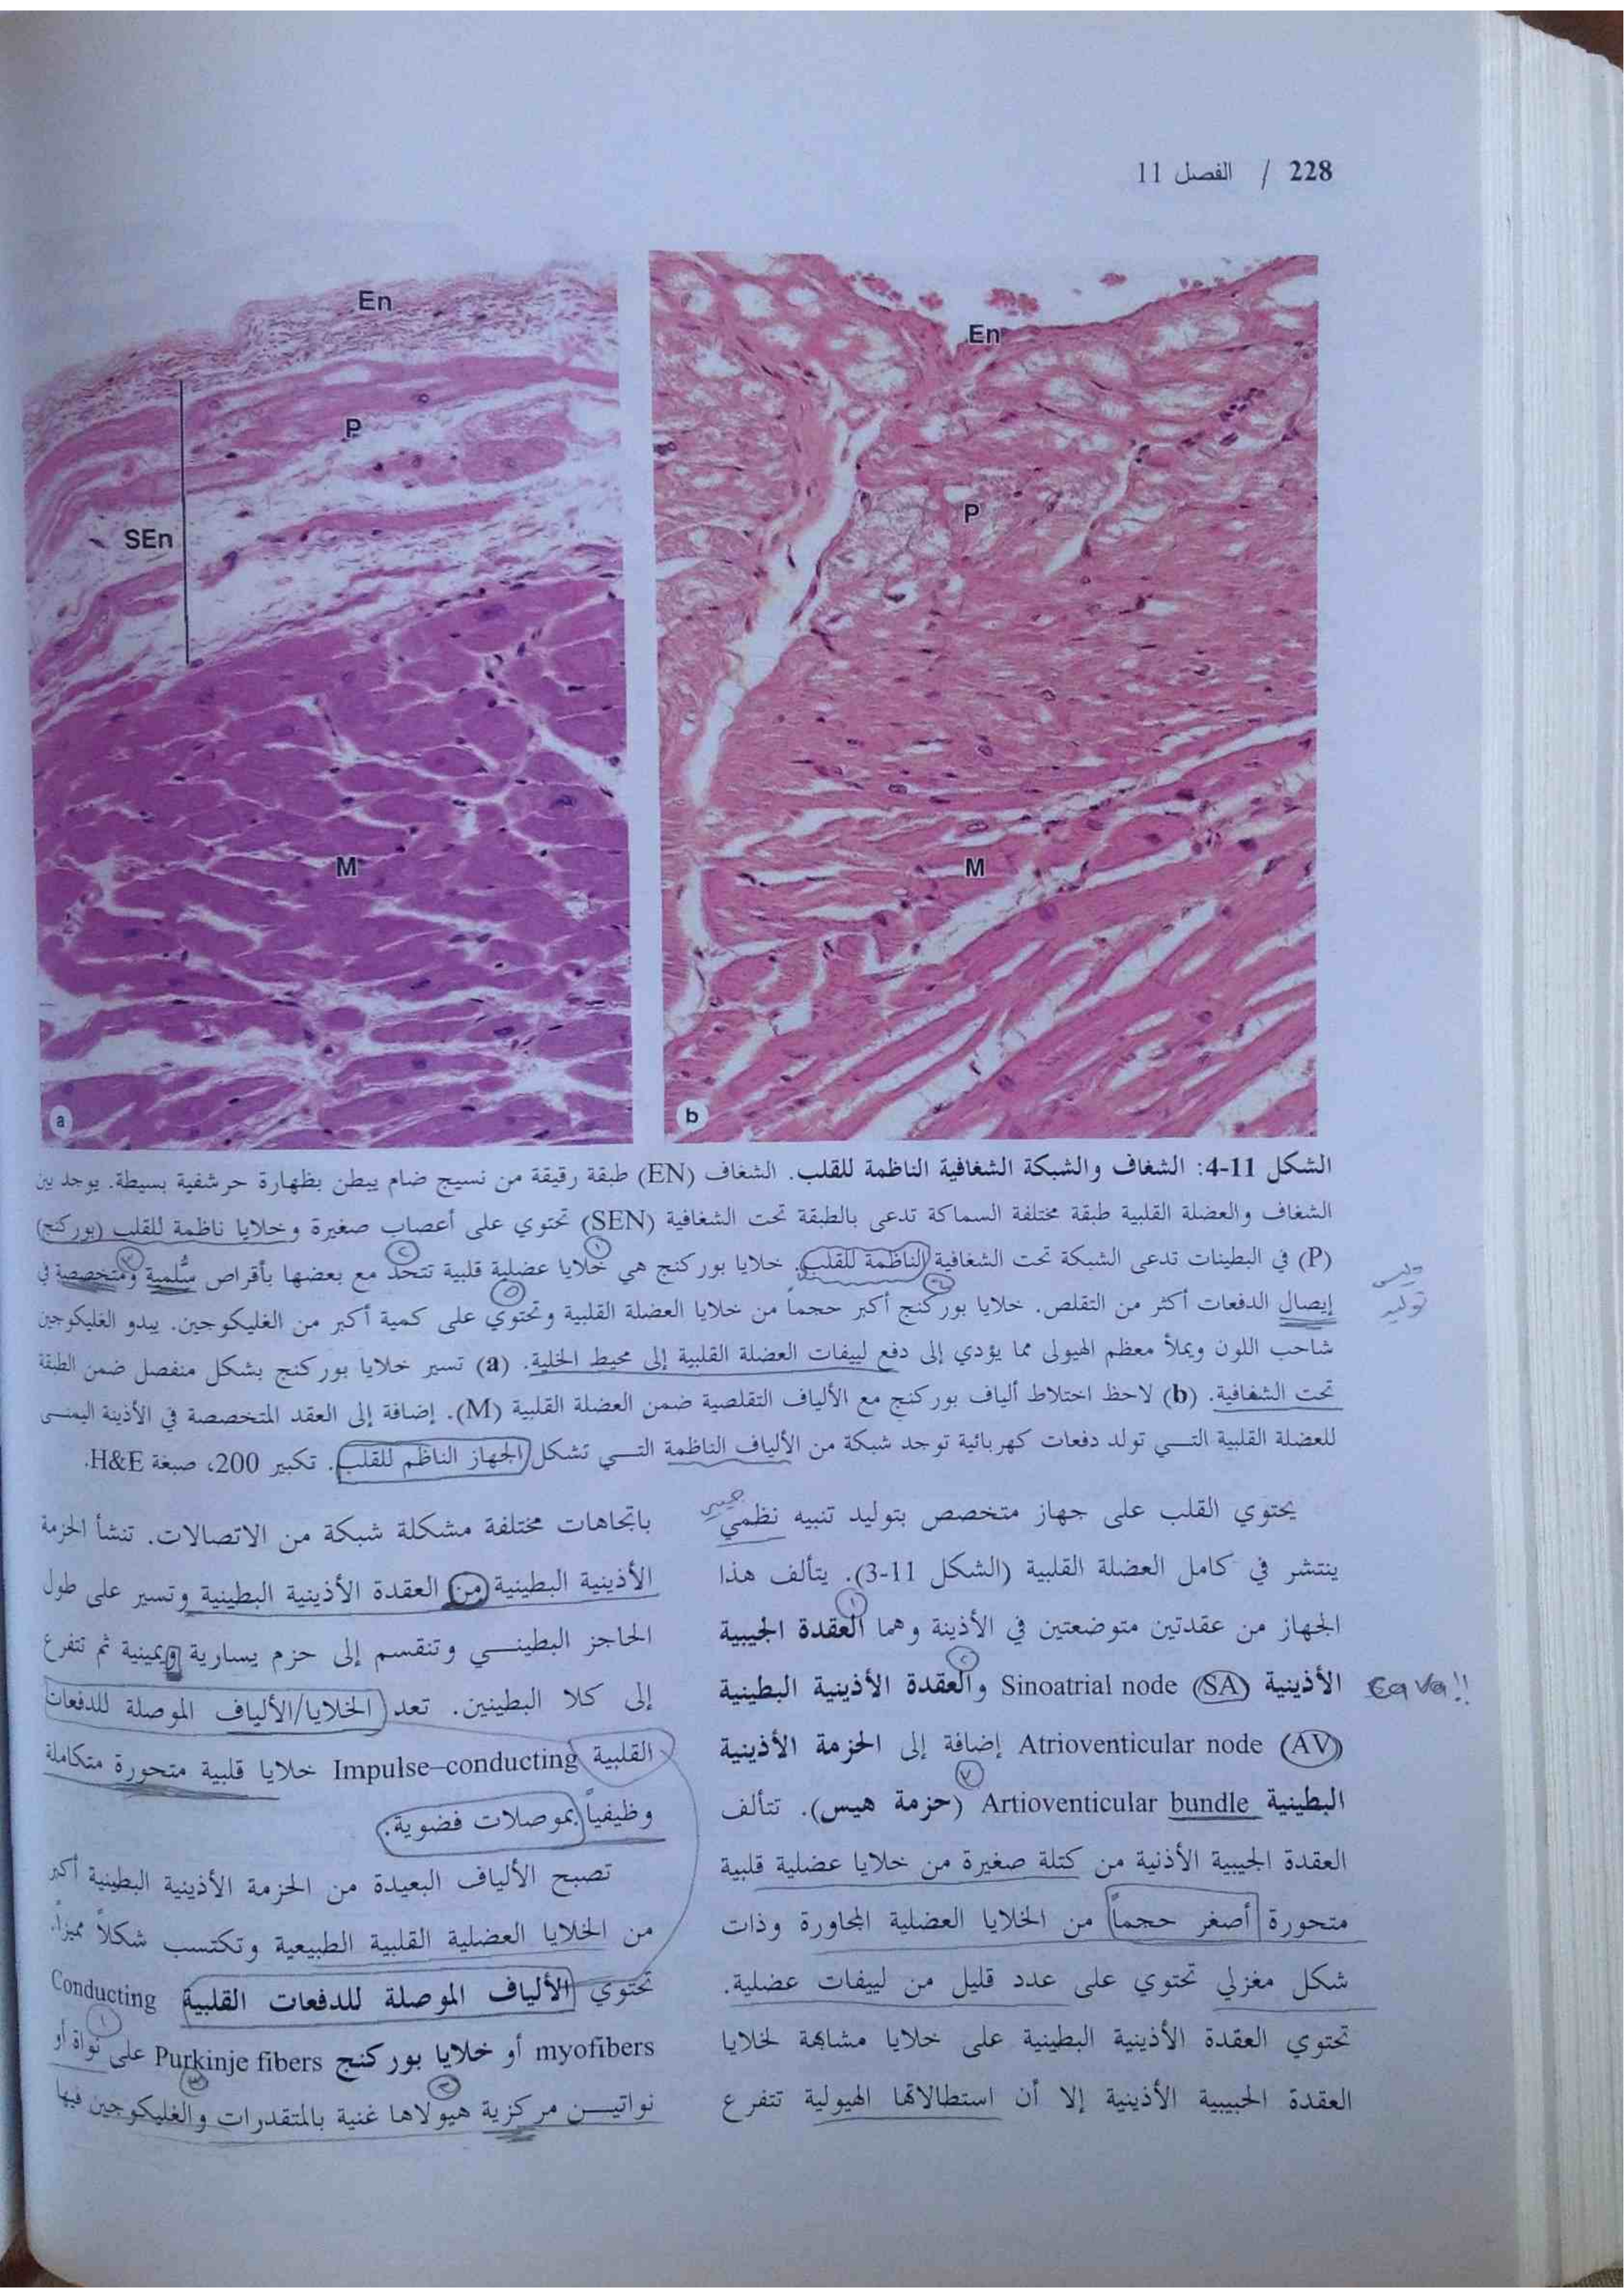 228 / الفصل 11
En
P
SEn
M
a
En
P
M
b
الشكل 11-4: الشغاف والشبكة الشغافية الناظمة للقلب. الشغاف (EN) طبقة رقيقة من نسيج ضام يبطن بظهارة حرشفية بسيطة. يوجد بين
الشغاف والعضلة القلبية طبقة مختلفة السماكة تدعى بالطبقة تحت الشغافية (SEN) تحتوي على أعصاب صغيرة وخلايا ناظمة للقلب (بوركنج)
(P) في البطينات تدعى الشبكة تحت الشغافية الناظمة للقلب. خلايا بوركنج هي خلايا عضلية قلبية تتحد مع بعضها بأقراص سُلمية ومتخصصة في
إيصال الدفعات أكثر من التقلص. خلايا بوركنج أكبر حجماً من خلايا العضلة القلبية وتحتوي على كمية أكبر من الغليكوجين. يبدو الغليكوجين
شاحب اللون ويملأ معظم الهيولى مما يؤدي إلى دفع لييفات العضلة القلبية إلى محيط الخلية. (a) تسير خلايا بوركنج بشكل منفصل ضمن الطبقة
تحت الشغافية. (b) لاحظ اختلاط ألياف بوركنج مع الألياف التقلصية ضمن العضلة القلبية (M). إضافة إلى العقد المتخصصة في الأذينة اليمنى
للعضلة القلبية التي تولد دفعات كهربائية توجد شبكة من الألياف الناظمة التي تشكل الجهاز الناظم للقلب. تكبير 200، صبغة H&E.
وليس
توليد
يحتوي القلب على جهاز متخصص بتوليد تنبيه نظمي
ينتشر في كامل العضلة القلبية (الشكل 11-3). يتألف هذا
الجهاز من عقدتين متوضعتين في الأذينة وهما العقدة الجيبية
الأذينية (SA) Sinoatrial node والعقدة الأذينية البطينية
Ca va!!
(AV) Atrioventicular node إضافة إلى الحزمة الأذينية
البطينية Artioventicular bundle (حزمة هيس). تتألف
العقدة الجيبية الأذنية من كتلة صغيرة من خلايا عضلية قلبية
متحورة أصغر حجماً من الخلايا العضلية المجاورة وذات
شكل مغزلي تحتوي على عدد قليل من لييفات عضلية.
تحتوي العقدة الأذينية البطينية على خلايا مشابهة لخلايا
العقدة الجيبية الأذينية إلا أن استطالاتها الهيولية تتفرع
باتجاهات مختلفة مشكلة شبكة من الاتصالات. تنشأ الحزمة
الأذينية البطينية من العقدة الأذينية البطينية وتسير على طول
الحاجز البطيني وتنقسم إلى حزم يسارية ويمينية ثم تتفرع
إلى كلا البطينين. تعد الخلايا/الألياف الموصلة للدفعات
القلبية Impulse-conducting خلايا قلبية متحورة متكاملة
وظيفياً بموصلات فضوية.
تصبح الألياف البعيدة من الحزمة الأذينية البطينية أكبر
من الخلايا العضلية القلبية الطبيعية وتكتسب شكلاً مميزاً.
تحتوي الألياف الموصلة للدفعات القلبية Conducting
myofibers أو خلايا بوركنج Purkinje fibers على نواة أو
نواتيـن مركزية هيولاها غنية بالمتقدرات والغليكوجين فيها